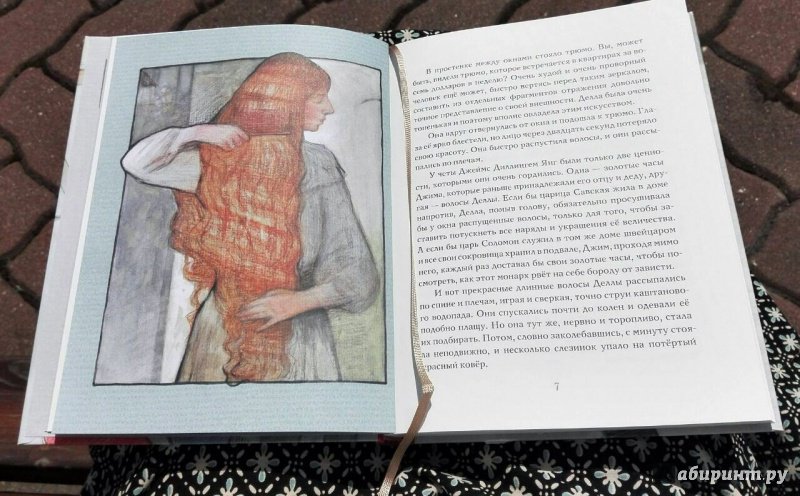 В простенке между окнами стояло трюмо. Вы, может
быть, видели трюмо, которое встречается в квартирах за во-
семь долларов в неделю? Очень худой и очень проворный
человек ещё может, быстро вертясь перед таким зеркалом,
составить из отдельных фрагментов отражения довольно
точное представление о своей внешности. Делла была очень
тоненькая и поэтому вполне овладела этим искусством.
Она вдруг отвернулась от окна и подошла к трюмо. Гла-
за её ярко блестели, но лицо через двадцать секунд потеряло
свою красоту. Она быстро распустила волосы, и они рассы-
пались по плечам.
У четы Джеймс Диллингем Янг были только две ценно-
сти, которыми они очень гордились. Одна — золотые часы
Джима, которые раньше принадлежали его отцу и деду, дру-
гая — волосы Деллы. Если бы царица Савская жила в доме
напротив, Делла, помыв голову, обязательно просушивала
бы у окна распущенные волосы, только для того, чтобы за-
ставить потускнеть все наряды и украшения её величества.
А если бы царь Соломон служил в том же доме швейцаром
и все свои сокровища хранил в подвале, Джим, проходя мимо
него, каждый раз доставал бы свои золотые часы, чтобы по-
смотреть, как этот монарх рвёт на себе бороду от зависти.
И вот прекрасные длинные волосы Деллы рассыпались
по спине и плечам, играя и сверкая, точно струи каштаново-
го водопада. Они спускались почти до колен и одевали её
подобно плащу. Но она тут же, нервно и торопливо, стала
их подбирать. Потом, словно заколебавшись, с минуту стоя-
ла неподвижно, и несколько слезинок упало на потёртый
красный ковёр.
7
абиринт.ру